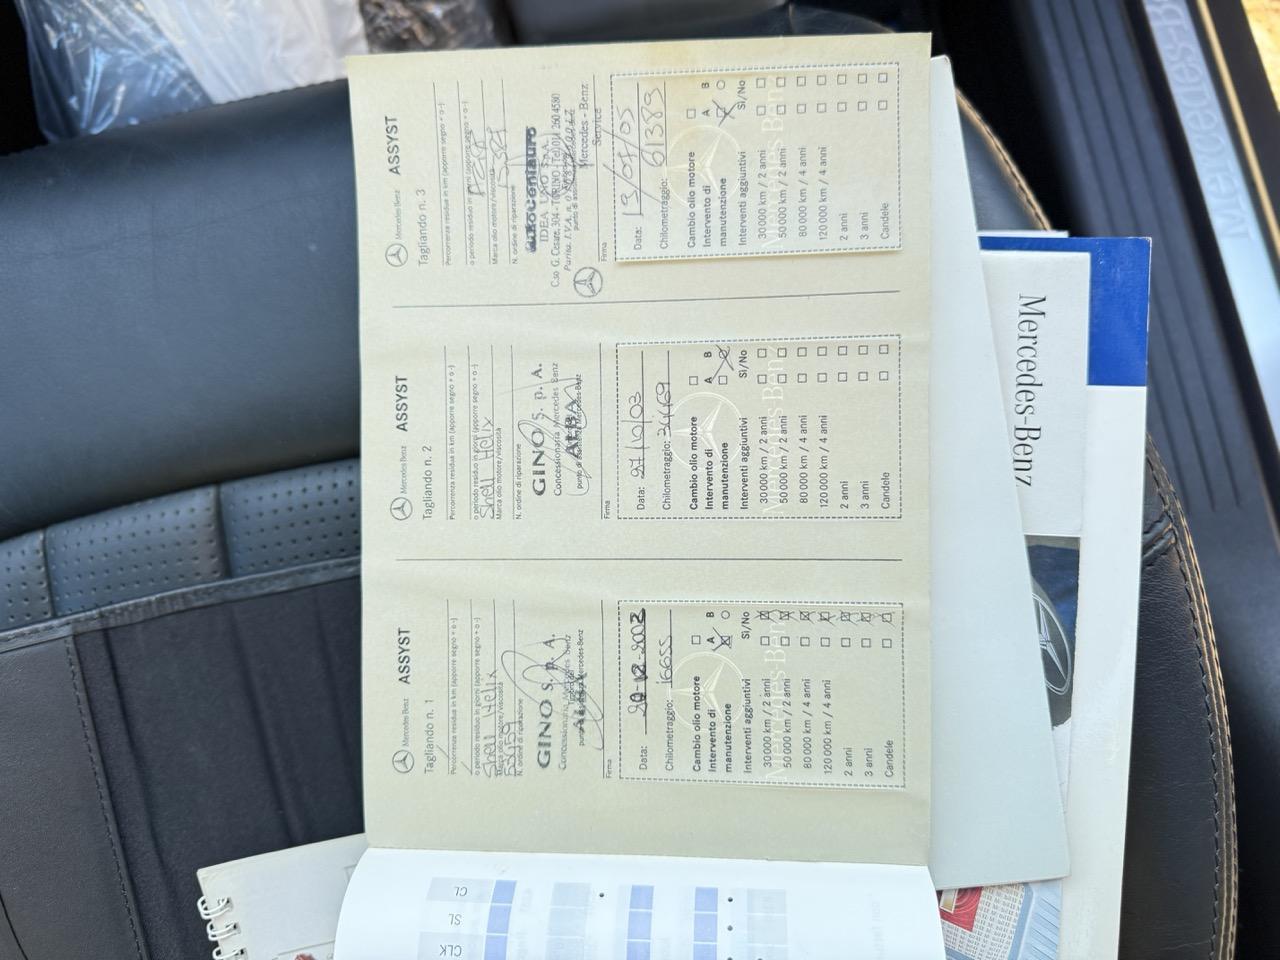 Mercedes Benz ASSYST
Tagliando n. 1
Percorrenza residua in km (apporre segno + o -)
o periodo residuo in giorni (apporre segno + o -)
Shell Helix
Marca olio motore/viscosità
N. ordine di riparazione
GINO S. p. A.
Concessionaria Mercedes Benz
Firma
Data: 20-12-2002
Chilometraggio: 16655
Cambio olio motore
Intervento di A B
manutenzione
Interventi aggiuntivi Sì/No
30000 km / 2 anni
50000 km / 2 anni
80000 km / 4 anni
120000 km / 4 anni
2 anni
3 anni
Candele
Mercedes Benz ASSYST
Tagliando n. 2
Percorrenza residua in km (apporre segno + o -)
o periodo residuo in giorni (apporre segno + o -)
Shell Helix
Marca olio motore/viscosità
N. ordine di riparazione
GINO S. p. A.
Concessionaria Mercedes Benz
ALBA
Firma
Data: 27/10/03
Chilometraggio: 34469
Cambio olio motore
Intervento di A B
manutenzione
Interventi aggiuntivi Sì/No
30000 km / 2 anni
50000 km / 2 anni
80000 km / 4 anni
120000 km / 4 anni
2 anni
3 anni
Candele
Mercedes Benz ASSYST
Tagliando n. 3
Percorrenza residua in km (apporre segno + o -)
o periodo residuo in giorni (apporre segno + o -)
Marca olio motore/viscosità
N. ordine di riparazione
autocentauro
IDEA UNO S.p.A.
C.so G. Cesare, 304 - TORINO - Tel. 011 260 4580
Partita I.V.A. n.
Mercedes - Benz
Service
Firma
Data: 13/07/05
Chilometraggio: 61389
Cambio olio motore
Intervento di A B
manutenzione
Interventi aggiuntivi Sì/No
30000 km / 2 anni
50000 km / 2 anni
80000 km / 4 anni
120000 km / 4 anni
2 anni
3 anni
Candele
Mercedes-Benz
CL
SL
CLK